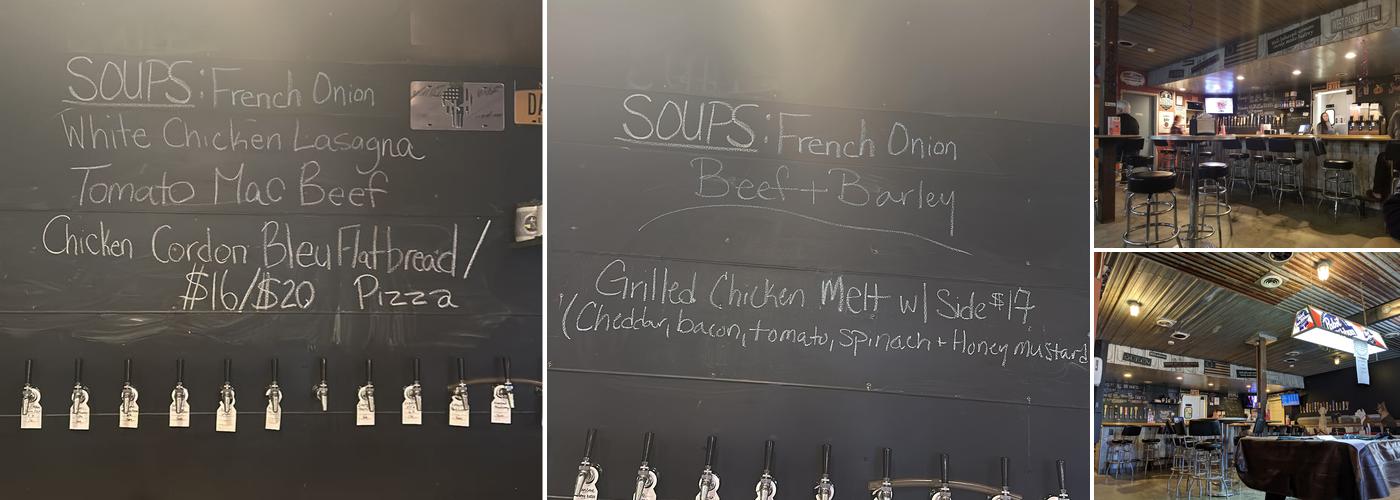 SOUPS: French Onion
White Chicken Lasagna
Tomato Mac Beef
Chicken Cordon Bleu Flatbread /
$16/$20 Pizza
DA
SOUPS: French Onion
Beef + Barley
Grilled Chicken Melt w/ Side $17
(Cheddar, bacon, tomato, spinach + Honey mustard
Pabst